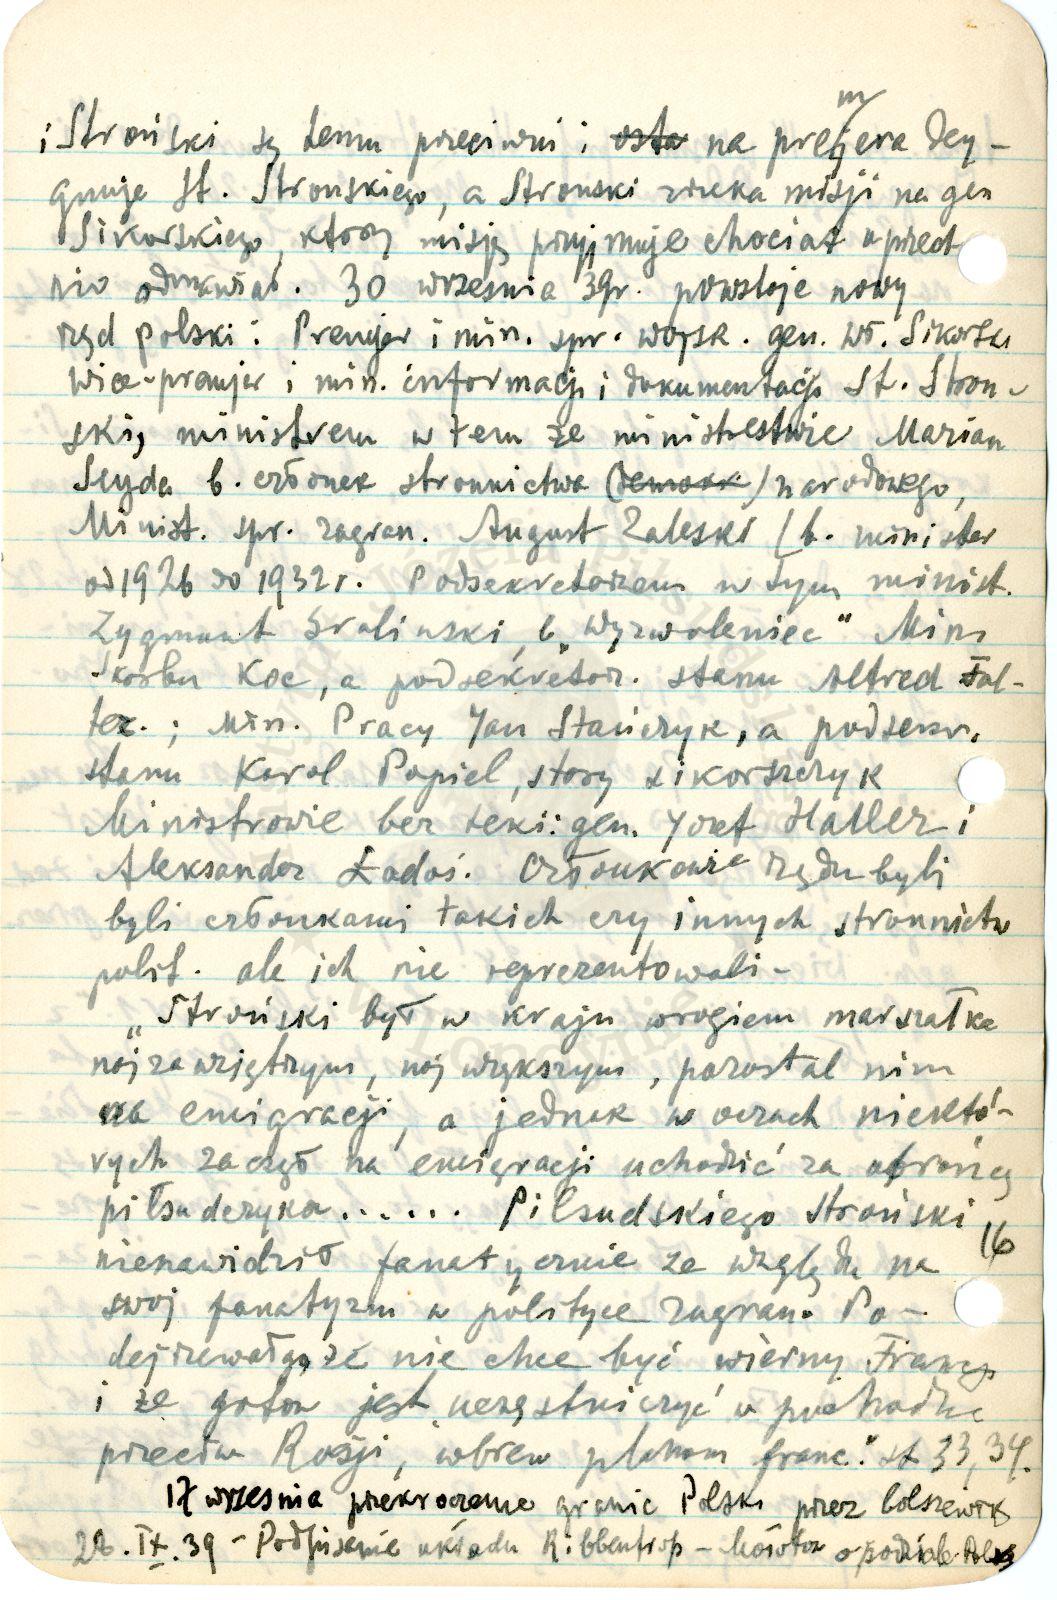 i Stroński są temu przeciwni i osta na premjera dey-
gnuje St. Strońskiego, a Stronski zrzeka misji na gen
Sikorskiego, ktory misję przyjmuje chociaż uprzed
nio odmawiał. 30 wrzesnia 39r. powstaje nowy
rząd polski: Premjer i min. spr. wojsk. gen. Wł. Sikorski
wice-premjer i min. informacji i dokumentacji St. Stron-
ski, ministrem w tem że ministrestwie Marian
Seyda b. członek stronnictwa (demokr.) narodowego,
Minist. spr. zagran. August Zaleski (b. minister
od 1926 do 1932 r. Podsekretarzem w tym minist.
Zygmunt Graliński, b. „Wyzwoleniec" Min.
skarbu Koc, a podsekretarz. stanu Alfred Fal-
ter.; Min. Pracy Jan Stańczyk, a podsekr.
stanu Karol Popiel, stary sikorszczyk
Ministrowie bez teki: gen. Józef Haller i
Aleksander Ładoś. Członkowie rządu byli
byli członkami takich czy innych stronnictw
polit. ale ich nie reprezentowali-
„Stroński był w kraju wrogiem marszałka
najzawziętrzym, największym, pozostał nim
na emigracji, a jednak w oczach niektó-
rych zaczął na emigracji uchodzić za obrońcę
piłsudczyka...... Piłsudskiego Stroński
nienawidził fanatycznie ze względu na
swoj fanatyzm w polityce zagran. Po-
dejrzewał go, że nie chce być wierny Francji
i że gotów jest uczęstniczyć w pochodzie
przeciw Rosji, wbrew planom franc." st 33, 34.
16
17 wrzesnia przekroczenie granic Polski przez bolszewik
28. IX. 39 - Podpisanie układu Ribbentrop - Mołotow o podziale Polski